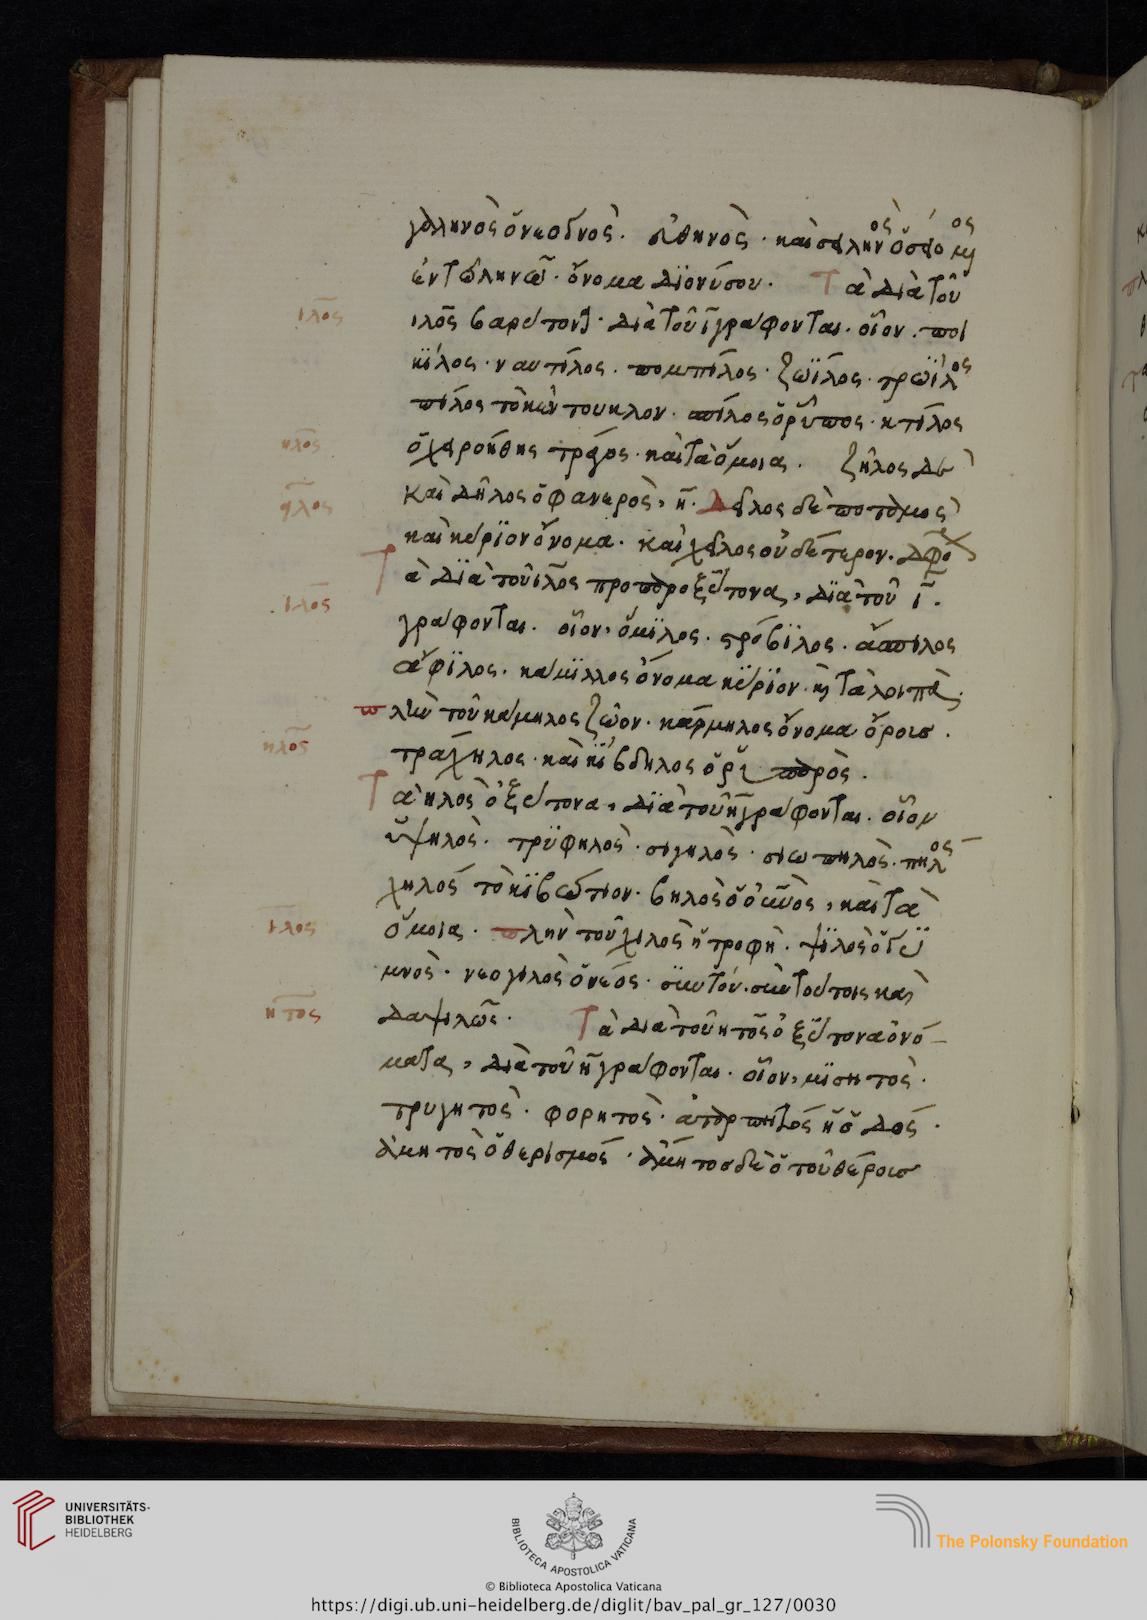 γαληνὸς ὄνεοῦνος. διθηνὸς. καὶ σεληνὸς ὅσεομος
ἐν τῶ ληνῶ. ὄνομα Διονύσου. Τὰ διὰ τοῦ
ιλος βαρύτονα. διὰ τοῦ ῑ γράφονται. οἷον. ποι
κΐλος. ναυτίλος. πομπίλος. ζωΐλος. τρωΐλος
πίλος τὸ κέντουκλον. σπίλος ὁ ῥύπος. κτίλος
ὁ χειροήθης τράγος. καὶ τὰ ὅμοια. ζῆλος δὲ
καὶ δῆλος ὁ φανερὸς, η̄. Δεῖλος δὲ ποταμὸς
καὶ κύριον ὄνομα. καὶ χεῖλος οὐδέτερον. δίφθο
Τὰ διὰ τοῦ ιλος προπαροξύτονα, διὰ τοῦ ῑ.
γράφονται. οἷον, ὅμιλος. στρόβιλος. ἄσπιλος
ἄφιλος. κάμιλλος ὄνομα κύριον. καὶ τὰ λοιπά.
πλὴν τοῦ κάμηλος ζῶον. κάρμηλος ὄνομα ὄρους.
τράχηλος. καὶ κίβδηλος ὁ πονηρός.
Τὰ ηλος ὀξύτονα, διὰ τοῦ η̄ γράφονται. οἷον
ὑψηλὸς. τρυφηλὸς. σιγηλὸς. σιωπηλὸς. πηλὸς
χηλὸς τὸ κιβώτιον. βηλὸς ὁ οὐνὸς, καὶ τὰ
ὅμοια. πλὴν τοῦ χιλὸς ἡ τροφὴ. ψιλὸς ὁ γυ
μνὸς. νεογιλὸς ὁ νέος. σὺν τούτοις καὶ
δαψιλῶς. Τὰ διὰ τοῦ ητος ὀξύτονα ὀνό
ματα, διὰ τοῦ η̄ γράφονται. οἷον, μισητὸς.
τρυγητὸς. φορητὸς. ἀταρπητὸς ἡ ὁδὸς.
ἀμητὸς ὁ θερισμὸς. ἄμητος δὲ ὁ τοῦ θέρους
ιλος
ηλος
ειλος
ιλος
ηλος
ιλος
ητος
UNIVERSITÄTS-
BIBLIOTHEK
HEIDELBERG
BIBLIOTECA APOSTOLICA VATICANA
The Polonsky Foundation
© Biblioteca Apostolica Vaticana
https://digi.ub.uni-heidelberg.de/diglit/bav_pal_gr_127/0030